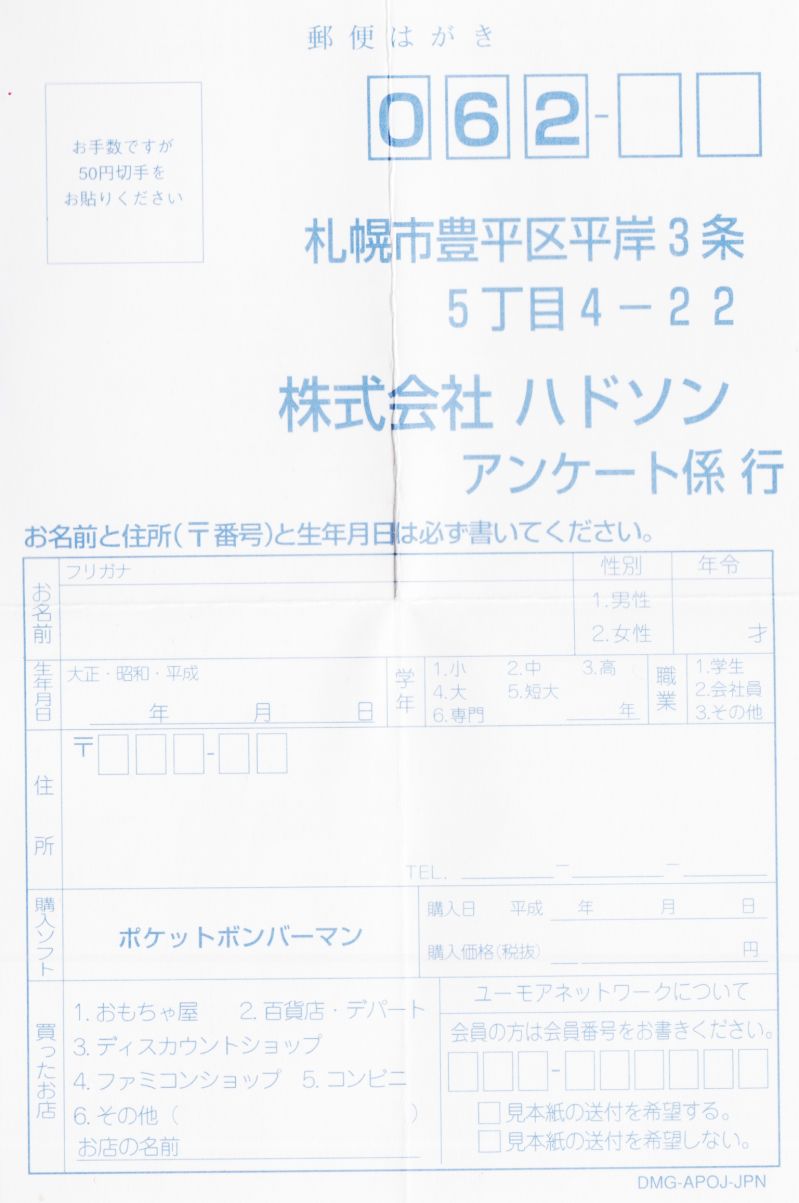 郵便はがき
お手数ですが
50円切手を
お貼りください
062-
札幌市豊平区平岸3条
5丁目4-22
株式会社 ハドソン
アンケート係 行
お名前と住所(〒番号)と生年月日は必ず書いてください。
お名前
フリガナ
性別
1.男性
2.女性
年令
才
生年月日
大正・昭和・平成
年 月 日
学年
1.小 2.中 3.高
4.大 5.短大
6.専門 年
職業
1.学生
2.会社員
3.その他
住所
〒 -
TEL. ー ー
購入ソフト
ポケットボンバーマン
購入日 平成 年 月 日
購入価格(税抜) 円
買ったお店
1.おもちゃ屋 2.百貨店・デパート
3.ディスカウントショップ
4.ファミコンショップ 5.コンビニ
6.その他( )
お店の名前
ユーモアネットワークについて
会員の方は会員番号をお書きください。
-
□見本紙の送付を希望する。
□見本紙の送付を希望しない。
DMG-APOJ-JPN